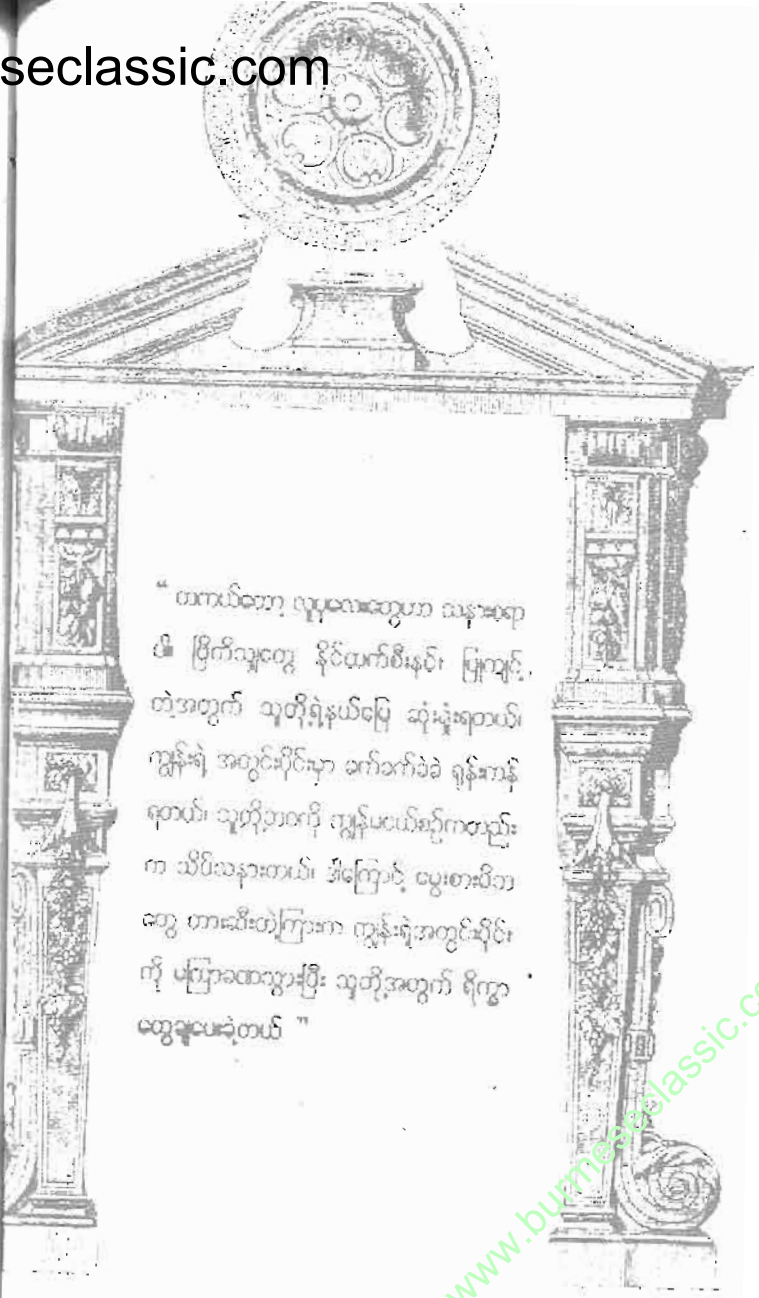 seclassic.com
“ တကယ်တော့ လူပုလေးတွေဟာ သနားစရာ
ပါ။ ဗြိတိသျှတွေ နှိပ်စက်
တဲ့အတွက် သူတို့ရဲ့နယ်မြေ ဆုံးရှုံးရတယ်၊
ကျွန်းရဲ့ အတွင်းပိုင်းမှာ ခက်ခက်ခဲခဲ ရုန်းကန်
ရတယ်၊ သူတို့ဘဝကို ကျွန်မငယ်စဉ်ကတည်း
က သိပ်သနားတယ်၊ ဒါကြောင့် မွေးစားမိဘ
တွေ တားဆီးတဲ့ကြားက ကျွန်းရဲ့အတွင်းပိုင်း
ကို မကြာခဏသွားပြီး သူတို့အတွက် ရိက္ခာ
တွေချပေးခဲ့တယ် ”
www.burmeseclassic.co